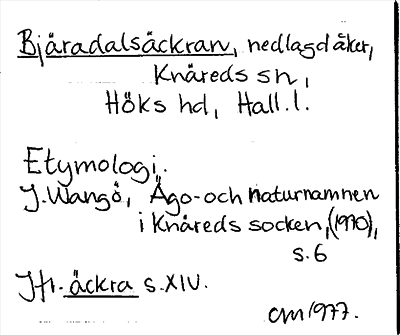 Bjäradalsäckran, nedlagd åker,
Knäreds sn,
Höks hd, Hall. l.
Etymologi.
J. Wangö, Ägo- och naturnamnen
i Knäreds socken, (1970),
s. 6
Jfr. äckra s. XIV.
CM 1977.